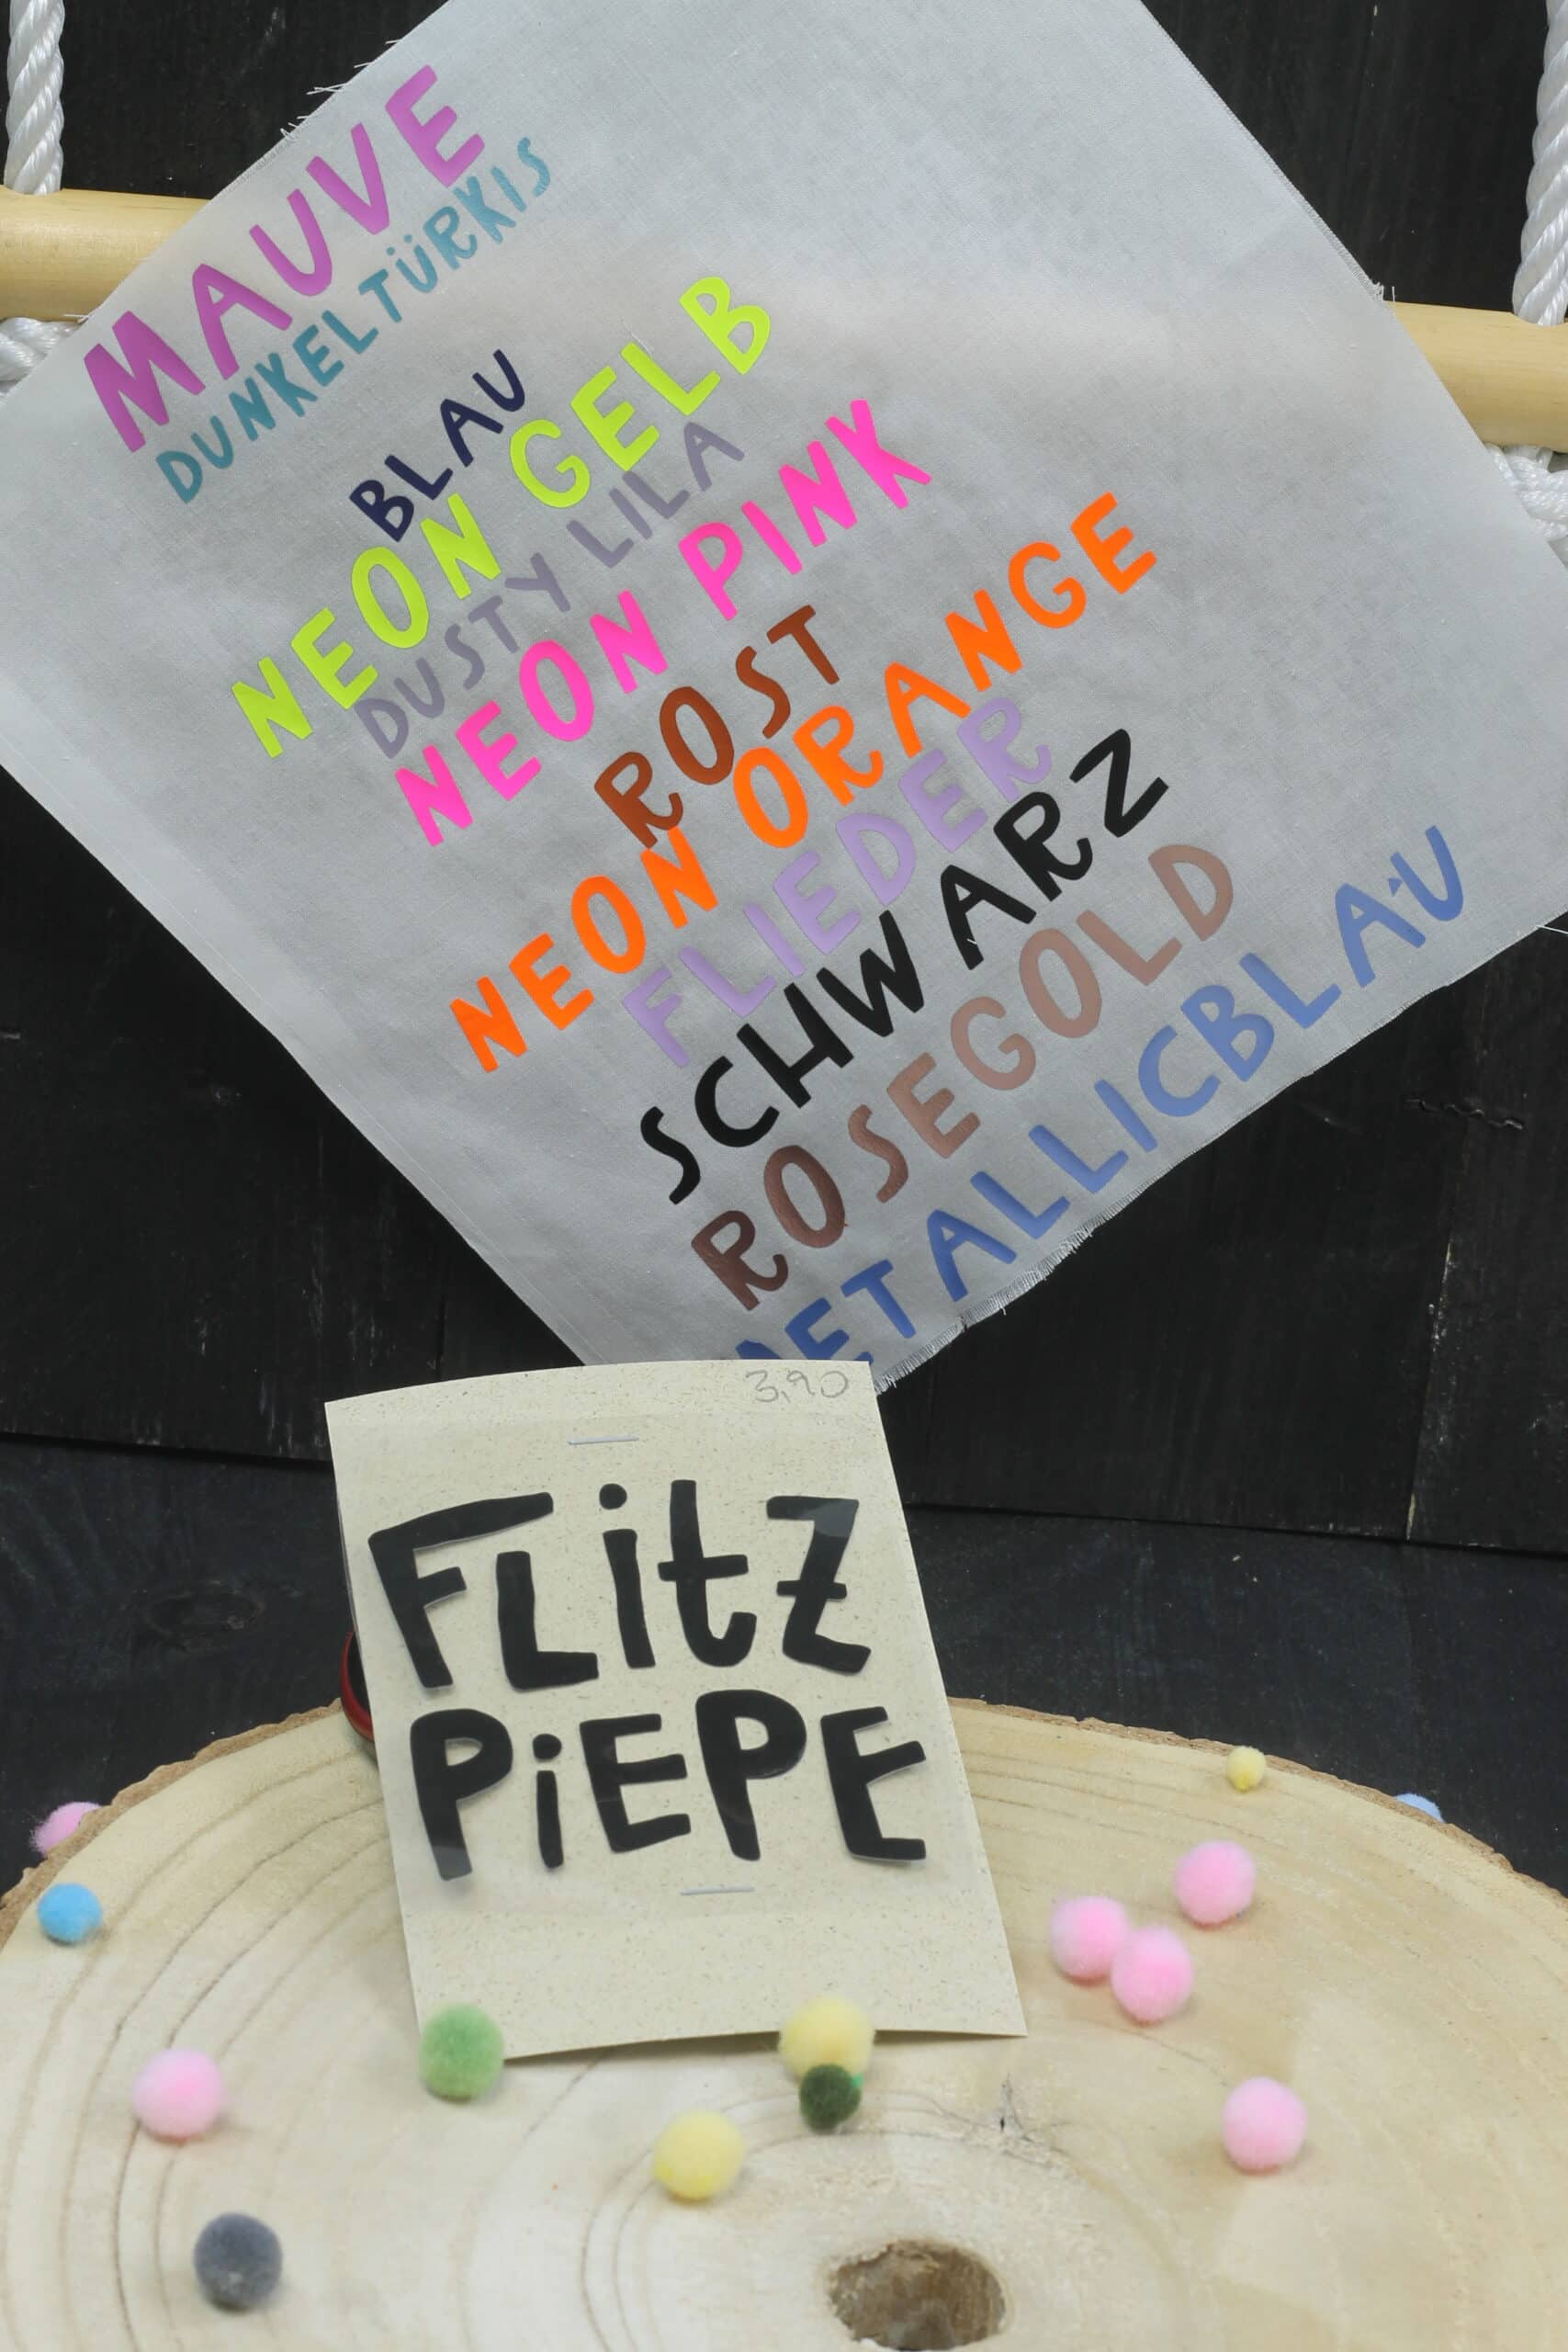 MAUVE
DUNKELTÜRKIS
BLAU
NEON GELB
DUSTY LILA
NEON PINK
ROST
NEON ORANGE
FLIEDER
SCHWARZ
ROSEGOLD
METALLICBLAU
3,90
FLitZ
PiEPE